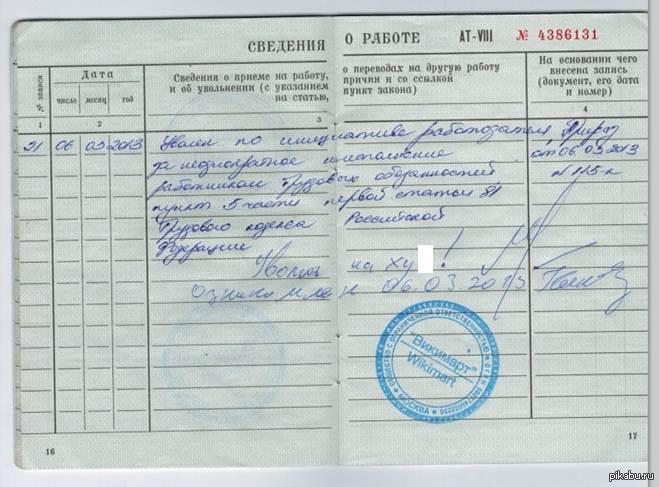 СВЕДЕНИЯ О РАБОТЕ АТ-VIII № 4386131
№ записи
Дата
число месяц год
Сведения о приеме на работу, о переводах на другую работу
и об увольнении (с указанием причин и со ссылкой
на статью, пункт закона)
На основании чего
внесена запись
(документ, его дата
и номер)
1 2 3 4
21 06 03 2013 Уволен по инициативе работодателя Приказ
за неоднократное неисполнение от 06.03.2013
работником трудовых обязанностей № 115-к
пункт 5 части первой статьи 81
Трудового кодекса Российской
Федерации
на ху !
06.03.2013
ОБЩЕСТВО С ОГРАНИЧЕННОЙ ОТВЕТСТВЕННОСТЬЮ
"Викимарт"
Wikimart
МОСКВА
16
17
pikabu.ru